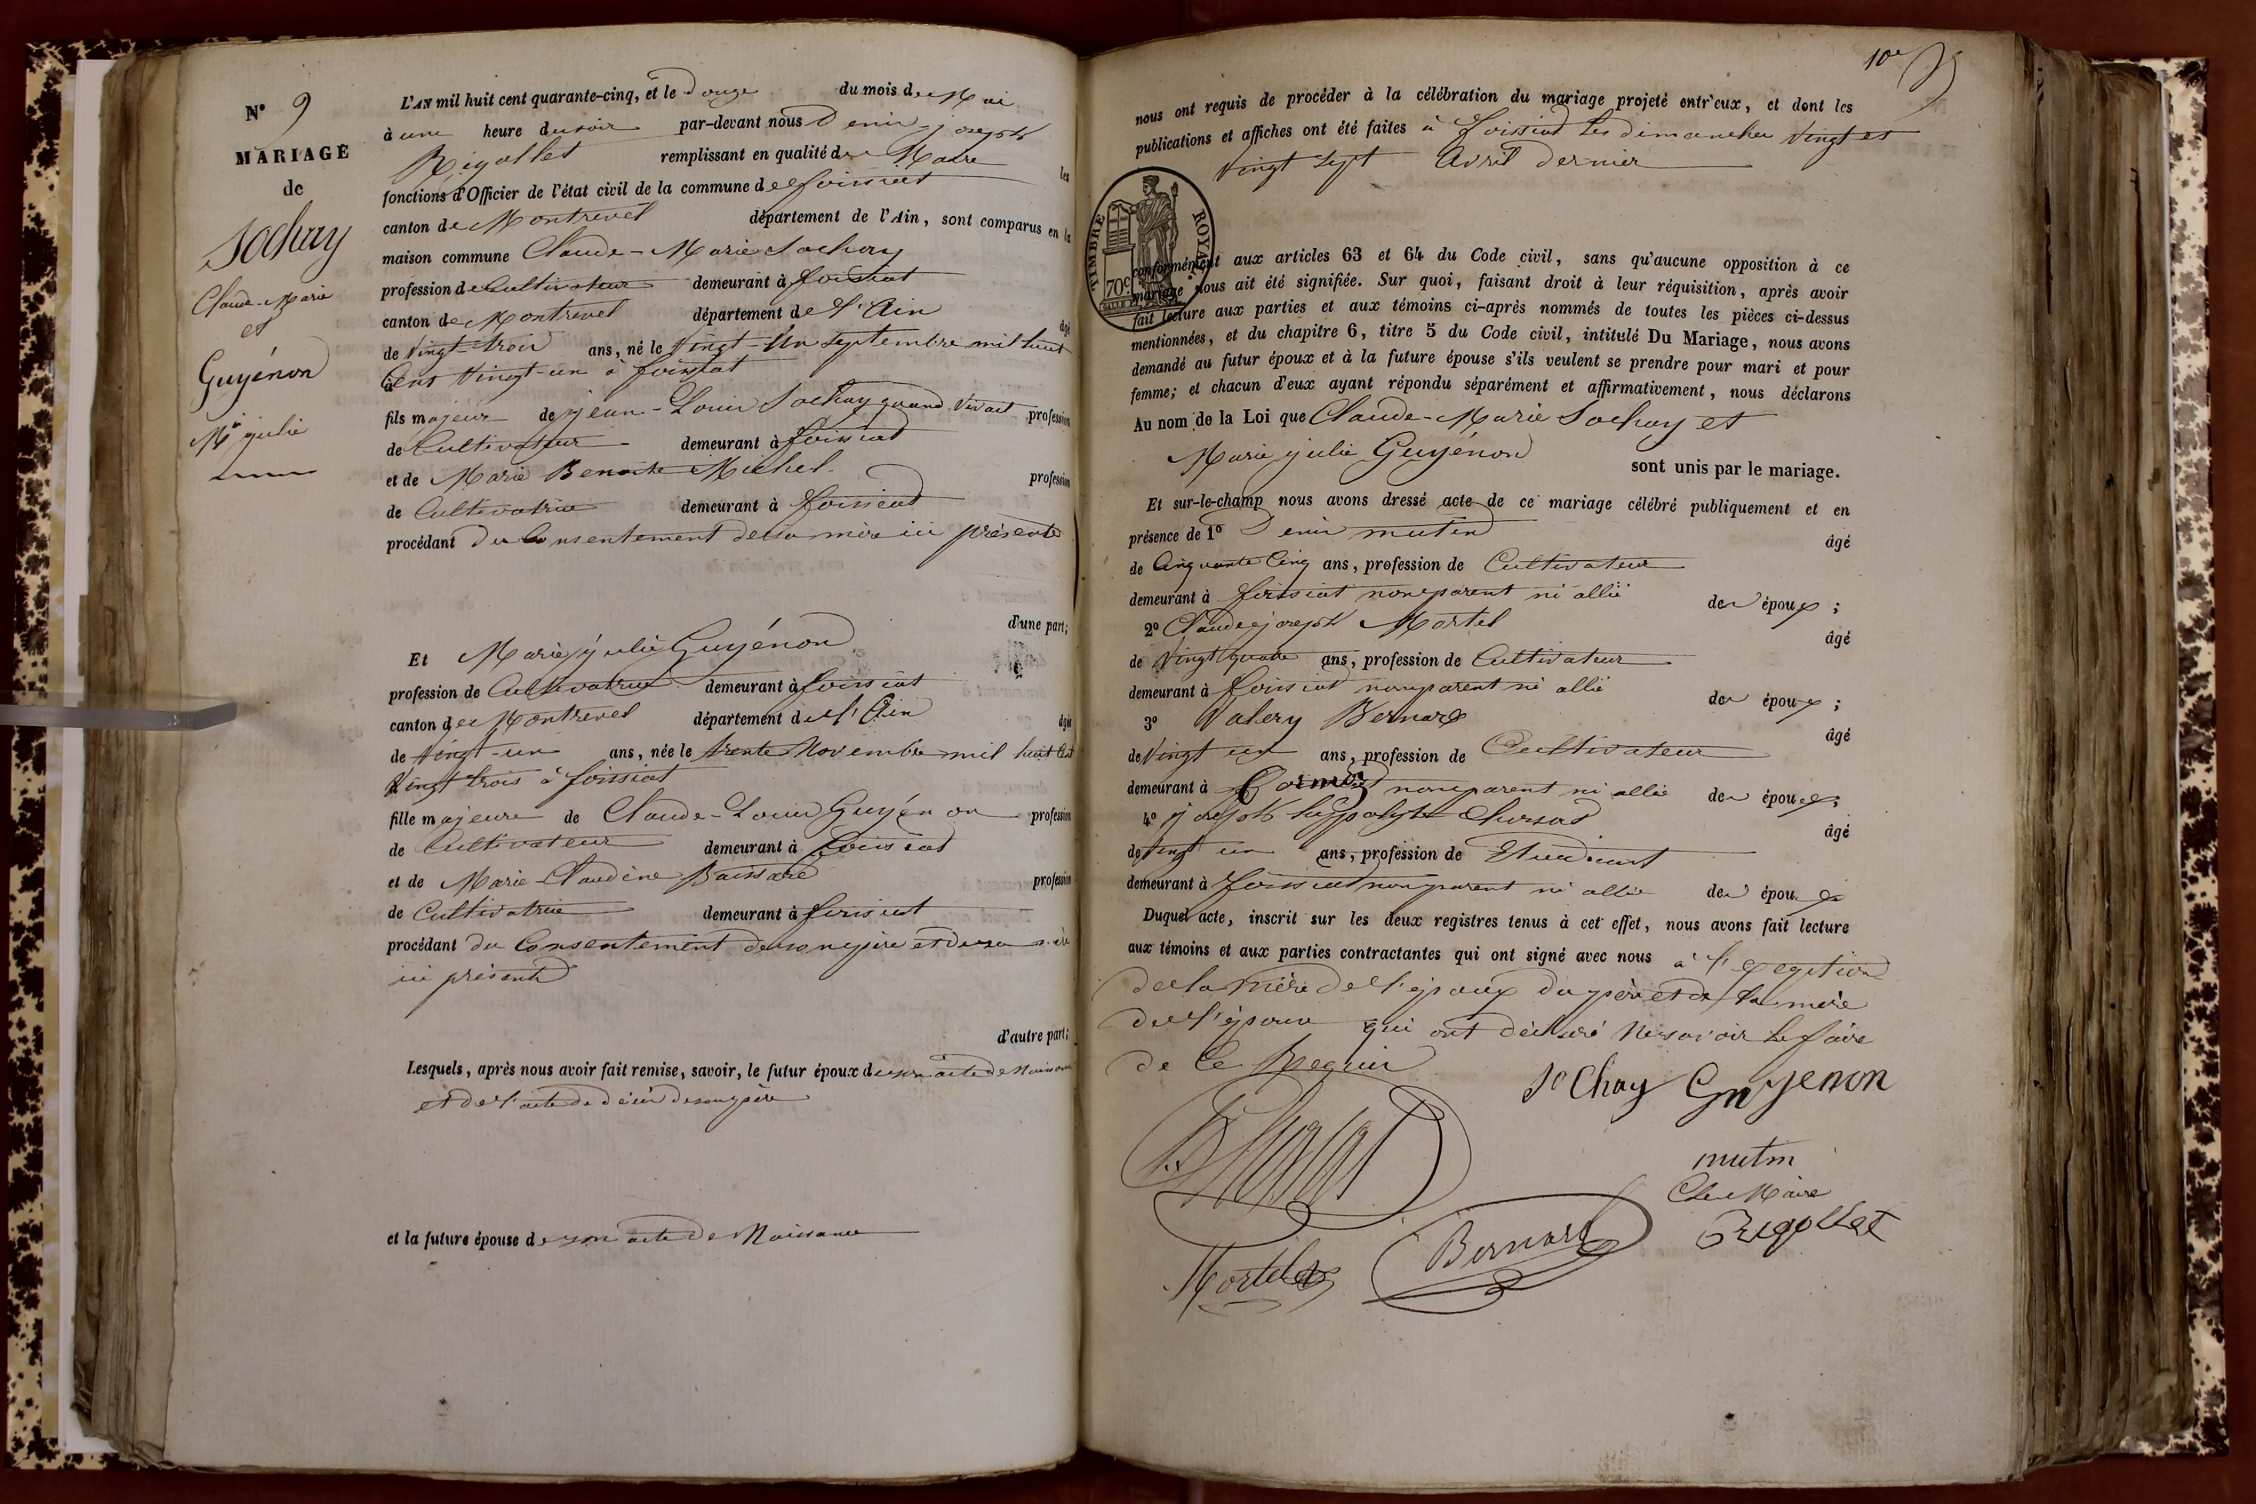 N° 9
MARIAGE
de
Sochay
Claude-Marie
et
Guyénon
Mie julie
L'AN mil huit cent quarante-cinq, et le Douze du mois de Mai
à une heure du soir par-devant nous Denis joseph
Rigollet remplissant en qualité de Maire les
fonctions d'Officier de l'état civil de la commune de foissiat
canton de Montrevel département de l'Ain, sont comparus en la
maison commune Claude-Marie Sochay
profession de Cultivateur demeurant à foissiat
canton de Montrevel département de l'Ain âgé
de Vingt-trois ans, né le Vingt-Un Septembre mil huit
Cent Vingt-un à foissiat
fils majeur de jean-Louis Sochay quand Vivait profession
de Cultivateur demeurant à foissiat
et de Marie Benoite Michel profession
de Cultivatrice demeurant à foissiat
procédant du Consentement de sa mère ici présente
d'une part;
Et Marie julie Guyénon
profession de Cultivatrice demeurant à foissiat
canton de Montrevel département de l'Ain âgée
de Vingt-un ans, née le trente Novembre mil huit Cent
Vingt trois à foissiat
fille majeure de Claude-Louis Guyénon profession
de Cultivateur demeurant à foissiat
et de Marie-Claudine Baissard profession
de Cultivatrice demeurant à foissiat
procédant du Consentement de son père et de sa mère
ici présents
d'autre part;
Lesquels, après nous avoir fait remise, savoir, le futur époux de son acte de Naissance
et de l'acte de décès de son père
et la future épouse de son acte de Naissance
10e
nous ont requis de procéder à la célébration du mariage projeté entr'eux, et dont les
publications et affiches ont été faites à foissiat les dimanches Vingt et
Vingt Sept Avril dernier
TIMBRE ROYAL
70c
conformément aux articles 63 et 64 du Code civil, sans qu'aucune opposition à ce
mariage nous ait été signifiée. Sur quoi, faisant droit à leur réquisition, après avoir
fait lecture aux parties et aux témoins ci-après nommés de toutes les pièces ci-dessus
mentionnées, et du chapitre 6, titre 5 du Code civil, intitulé Du Mariage, nous avons
demandé au futur époux et à la future épouse s'ils veulent se prendre pour mari et pour
femme; et chacun d'eux ayant répondu séparément et affirmativement, nous déclarons
Au nom de la Loi que Claude-Marie Sochay et
Marie julie Guyénon sont unis par le mariage.
Et sur-le-champ nous avons dressé acte de ce mariage célébré publiquement et en
présence de 1° Denis mutin âgé
de Cinquante Cinq ans, profession de Cultivateur
demeurant à foissiat non parent ni allié des époux;
2° Claude joseph Mortel âgé
de Vingt quatre ans, profession de Cultivateur
demeurant à foissiat non parent ni allié des époux;
3° Valery Bernard âgé
de Vingt un ans, profession de Cultivateur
demeurant à Cormoz non parent ni allié des époux;
4° joseph hyppolyte Chursat âgé
de Vingt un ans, profession de Etudiant
demeurant à foissiat non parent ni allié des époux
Duquel acte, inscrit sur les deux registres tenus à cet effet, nous avons fait lecture
aux témoins et aux parties contractantes qui ont signé avec nous à l'exception
de la mère de l'époux du père et de la mère
de l'épouse qui ont déclaré Ne savoir le faire
de Ce Requis
So Chay Guyenon
mutin
Le Maire
Rigollet
Mortel
Bernard